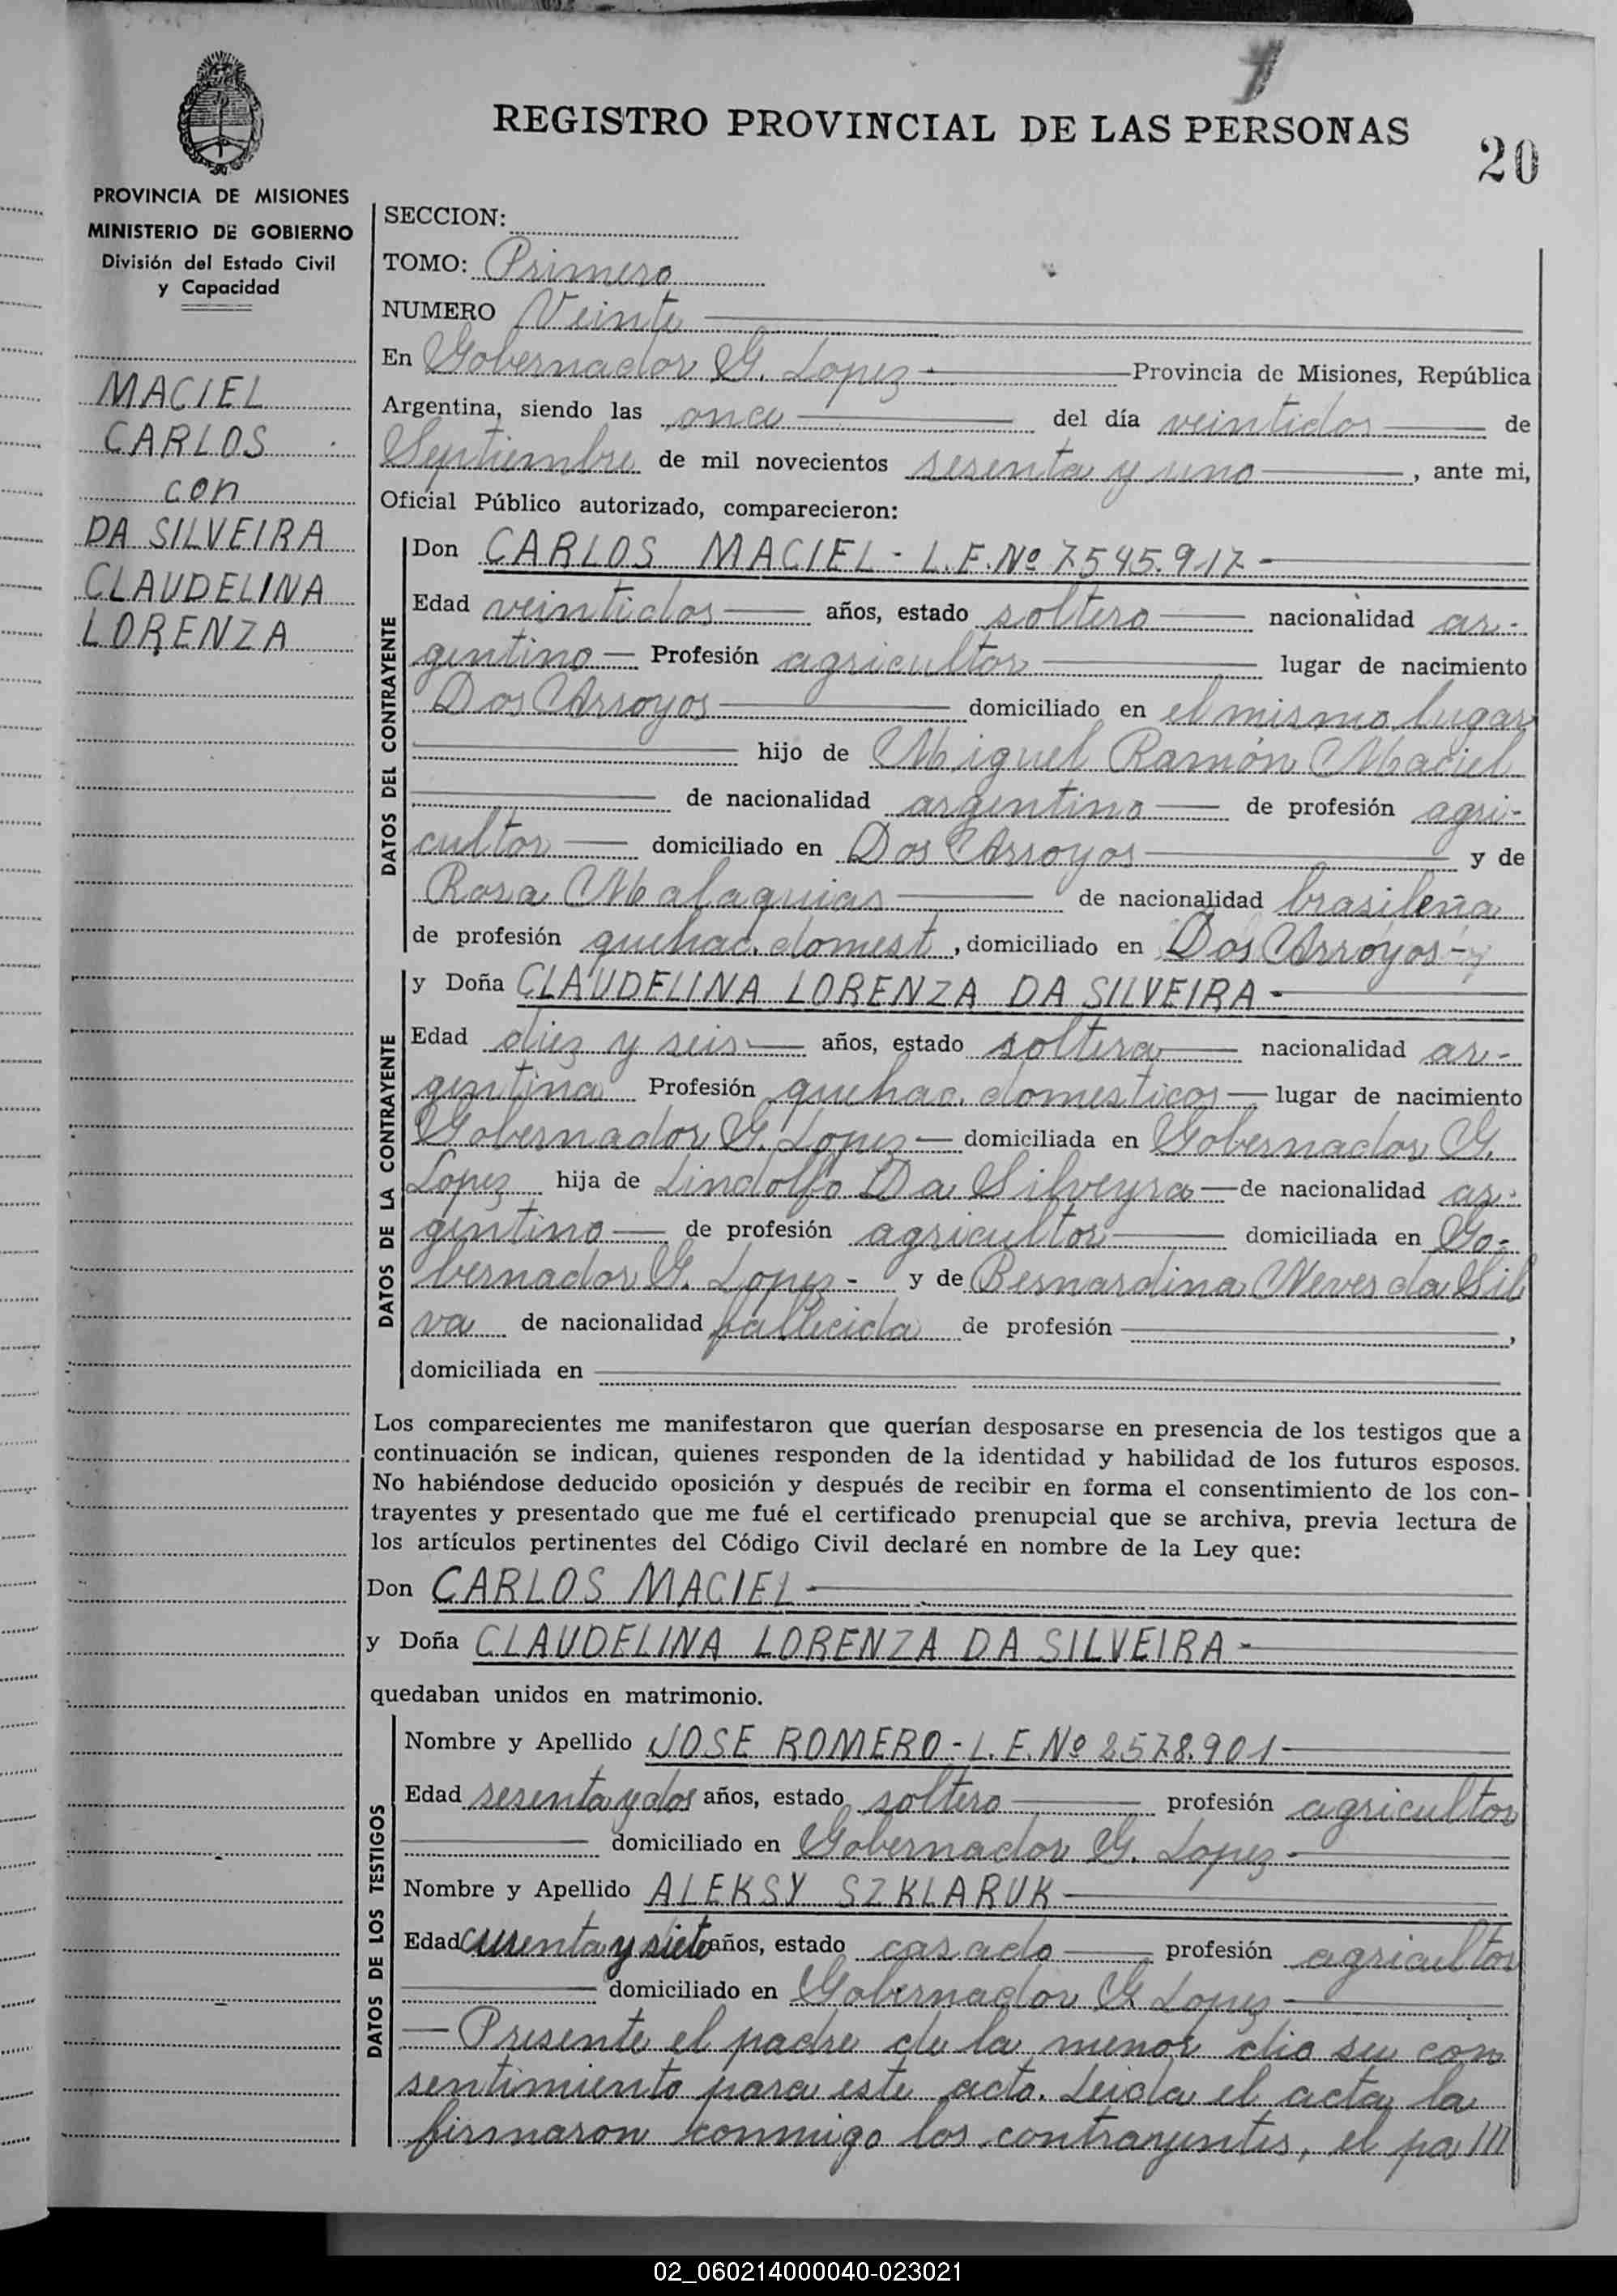 REGISTRO PROVINCIAL DE LAS PERSONAS
20
PROVINCIA DE MISIONES
MINISTERIO DE GOBIERNO
División del Estado Civil
y Capacidad
MACIEL
CARLOS
con
DA SILVEIRA
CLAUDELINA
LORENZA
SECCION:
TOMO: Primero
NUMERO Veinte
En Gobernador G. Lopez Provincia de Misiones, República
Argentina, siendo las once del día veintidos de
Septiembre de mil novecientos sesenta y uno, ante mi,
Oficial Público autorizado, comparecieron:
DATOS DEL CONTRAYENTE
Don CARLOS MACIEL - L.E.Nº 7.545.917-
Edad veintidos años, estado soltero nacionalidad ar-
gentino Profesión agricultor lugar de nacimiento
Dos Arroyos domiciliado en el mismo lugar
hijo de Miguel Ramón Maciel
de nacionalidad argentino de profesión agri-
cultor domiciliado en Dos Arroyos y de
Rosa Malaquias de nacionalidad brasileña
de profesión quehac. domest, domiciliado en Dos Arroyos-
DATOS DE LA CONTRAYENTE
y Doña CLAUDELINA LORENZA DA SILVEIRA-
Edad diez y seis años, estado soltera nacionalidad ar-
gentina Profesión quehac. domesticos lugar de nacimiento
Gobernador G. Lopez domiciliada en Gobernador G.
Lopez hija de Lindolfo Da Silveyra de nacionalidad ar-
gentino de profesión agricultor domiciliada en Go-
bernador G. Lopez- y de Bernardina Neves da Sil
va de nacionalidad fallecida de profesión ,
domiciliada en
Los comparecientes me manifestaron que querían desposarse en presencia de los testigos que a
continuación se indican, quienes responden de la identidad y habilidad de los futuros esposos.
No habiéndose deducido oposición y después de recibir en forma el consentimiento de los con-
trayentes y presentado que me fué el certificado prenupcial que se archiva, previa lectura de
los artículos pertinentes del Código Civil declaré en nombre de la Ley que:
Don CARLOS MACIEL
y Doña CLAUDELINA LORENZA DA SILVEIRA-
quedaban unidos en matrimonio.
DATOS DE LOS TESTIGOS
Nombre y Apellido JOSE ROMERO - L.E.Nº 2578.901
Edad sesenta y dos años, estado soltero profesión agricultor
domiciliado en Gobernador G. Lopez-
Nombre y Apellido ALEKSY SZKLARUK
Edad y siete años, estado casado profesión agricultor
domiciliado en Gobernador G Lopez
Presente el padre de la menor dio su con
sentimiento para este acto. Leida el acta la
firmaron conmigo los contrayentes, el pa///
02_060214000040-023021